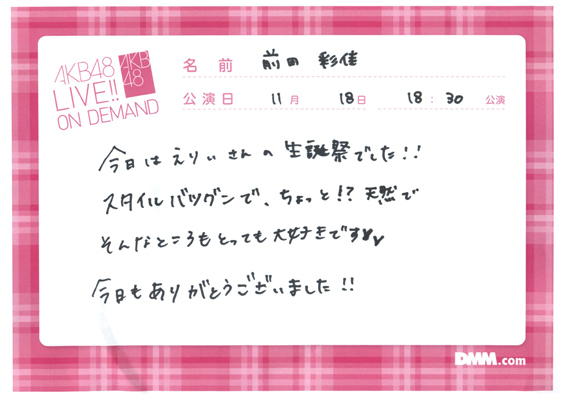 AKB48
LIVE!!
ON DEMAND
AKB
48
名前 前田 彩佳
公演日 11月 18日 18:30 公演
今日はえりぃさんの生誕祭でした!!
スタイルバツグンで、ちょっと!?天然で
そんなところもとっても大好きです♥♥
今日もありがとうございました!!
DMM.com